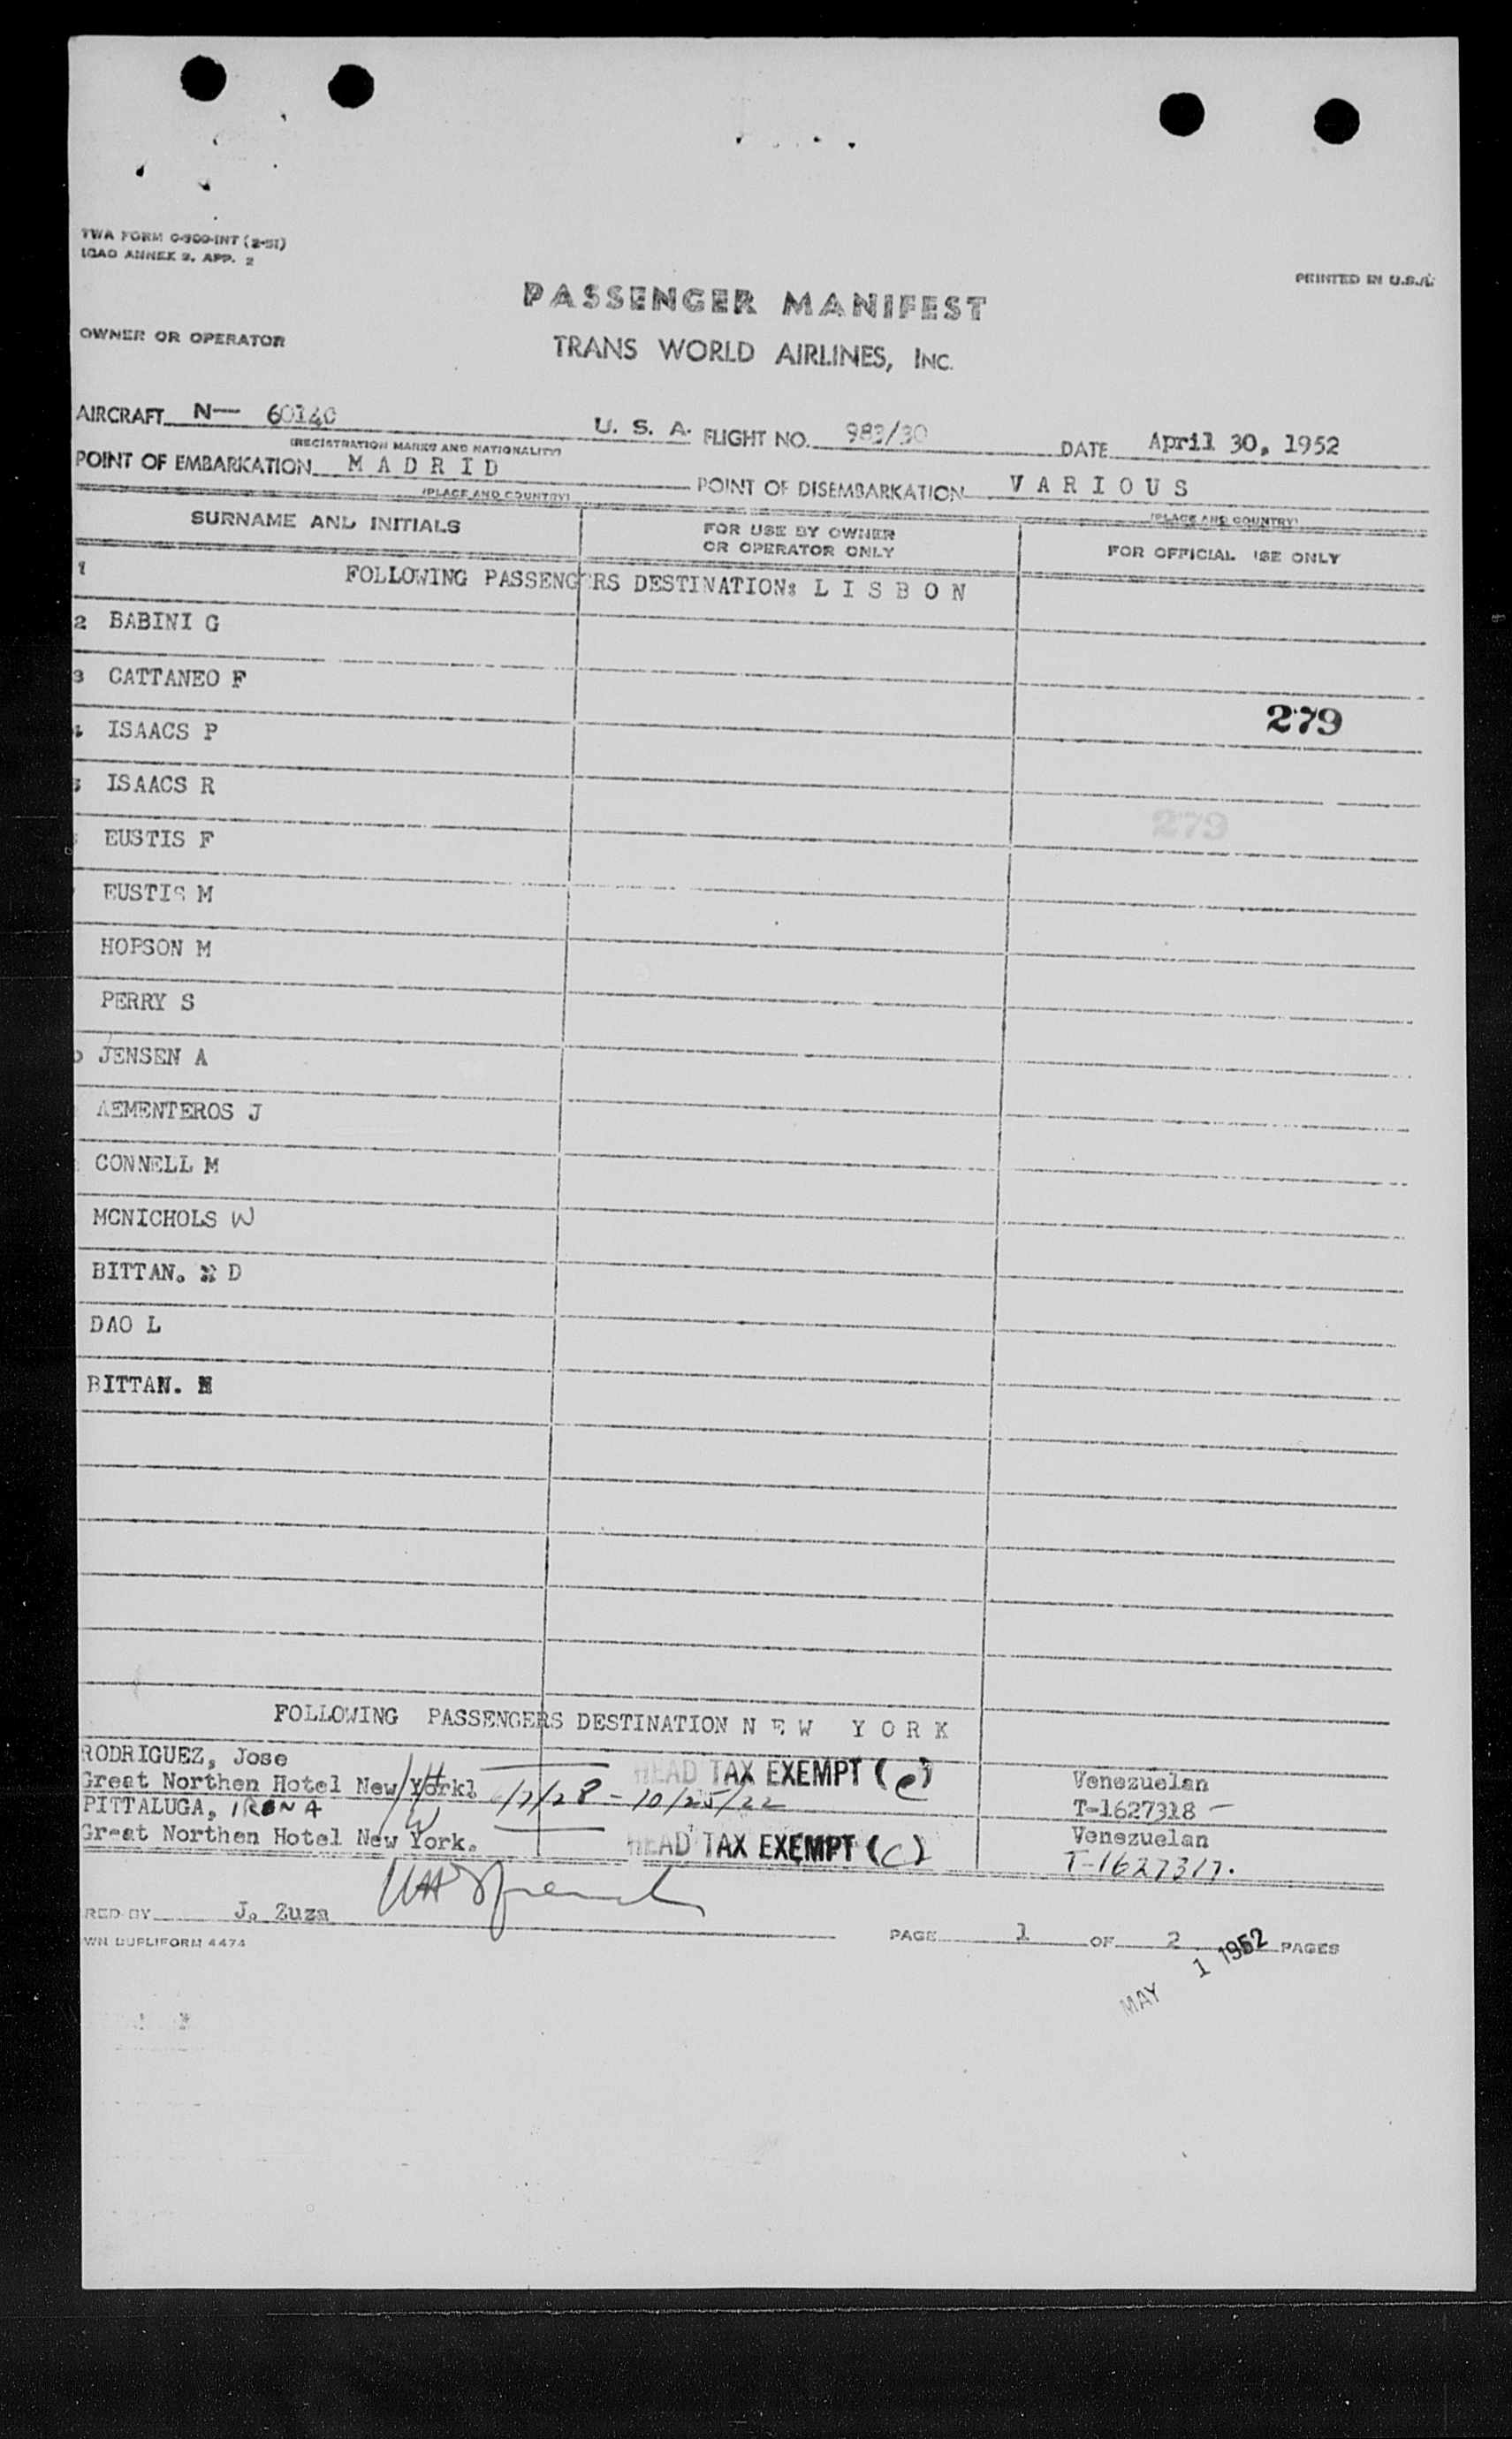 TWA FORM O-900-INT (2-51)
ICAO ANNEX 9, APP. 2
PRINTED IN U.S.A.
PASSENGER MANIFEST
OWNER OR OPERATOR
TRANS WORLD AIRLINES, INC.
AIRCRAFT N— 60140 U. S. A. FLIGHT NO. 983/30 DATE April 30, 1952
(REGISTRATION MARKS AND NATIONALITY)
POINT OF EMBARKATION M A D R I D POINT OF DISEMBARKATION V A R I O U S
(PLACE AND COUNTRY) (PLACE AND COUNTRY)
SURNAME AND INITIALS FOR USE BY OWNER OR OPERATOR ONLY FOR OFFICIAL USE ONLY
1 FOLLOWING PASSENGERS DESTINATION: L I S B O N
2 BABINI G
3 CATTANEO F
279
4 ISAACS P
5 ISAACS R
279
EUSTIS F
EUSTIS M
HOPSON M
PERRY S
JENSEN A
AEMENTEROS J
CONNELL M
MCNICHOLS W
BITTAN. D
DAO L
BITTAN.
FOLLOWING PASSENGERS DESTINATION N E W Y O R K
RODRIGUEZ, Jose HEAD TAX EXEMPT (c) Venezuelan
Great Northen Hotel New York. /7/28 - 10/25/22 T-1627318 -
PITTALUGA, IRENA Venezuelan
Great Northen Hotel New York. HEAD TAX EXEMPT (c) T-1627317.
RED BY J. Zuza
PAGE 1 OF 2 PAGES
WN DUPLIFORM 4474
MAY 1 1952